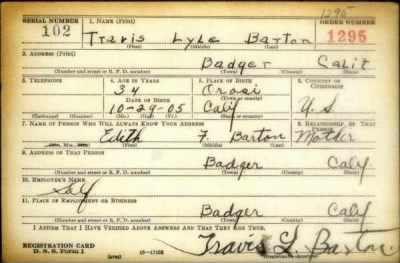 1295
SERIAL NUMBER 1. NAME (Print) ORDER NUMBER
102 Travis Lyle Barton 1295
(First) (Middle) (Last)
2. ADDRESS (Print)
Badger Calif
(Number and street or R. F. D. number) (Town) (County) (State)
3. TELEPHONE 4. AGE IN YEARS 5. PLACE OF BIRTH 6. COUNTRY OF CITIZENSHIP
34 Orosi
DATE OF BIRTH (Town or county)
10-29-05 Calif U S
(Exchange) (Number) (Mo.) (Day) (Yr.) (State or country)
7. NAME OF PERSON WHO WILL ALWAYS KNOW YOUR ADDRESS 8. RELATIONSHIP OF THAT PERSON
Edith F. Barton Mother
(Mr., Mrs., Miss) (First) (Middle) (Last)
9. ADDRESS OF THAT PERSON
Badger Calif
(Number and street or R. F. D. number) (Town) (County) (State)
10. EMPLOYER'S NAME
Self
11. PLACE OF EMPLOYMENT OR BUSINESS
Badger Calif
(Number and street or R. F. D. number) (Town) (County) (State)
I AFFIRM THAT I HAVE VERIFIED ABOVE ANSWERS AND THAT THEY ARE TRUE.
REGISTRATION CARD
D. S. S. Form 1 (over) 16-17105 Travis L. Barton